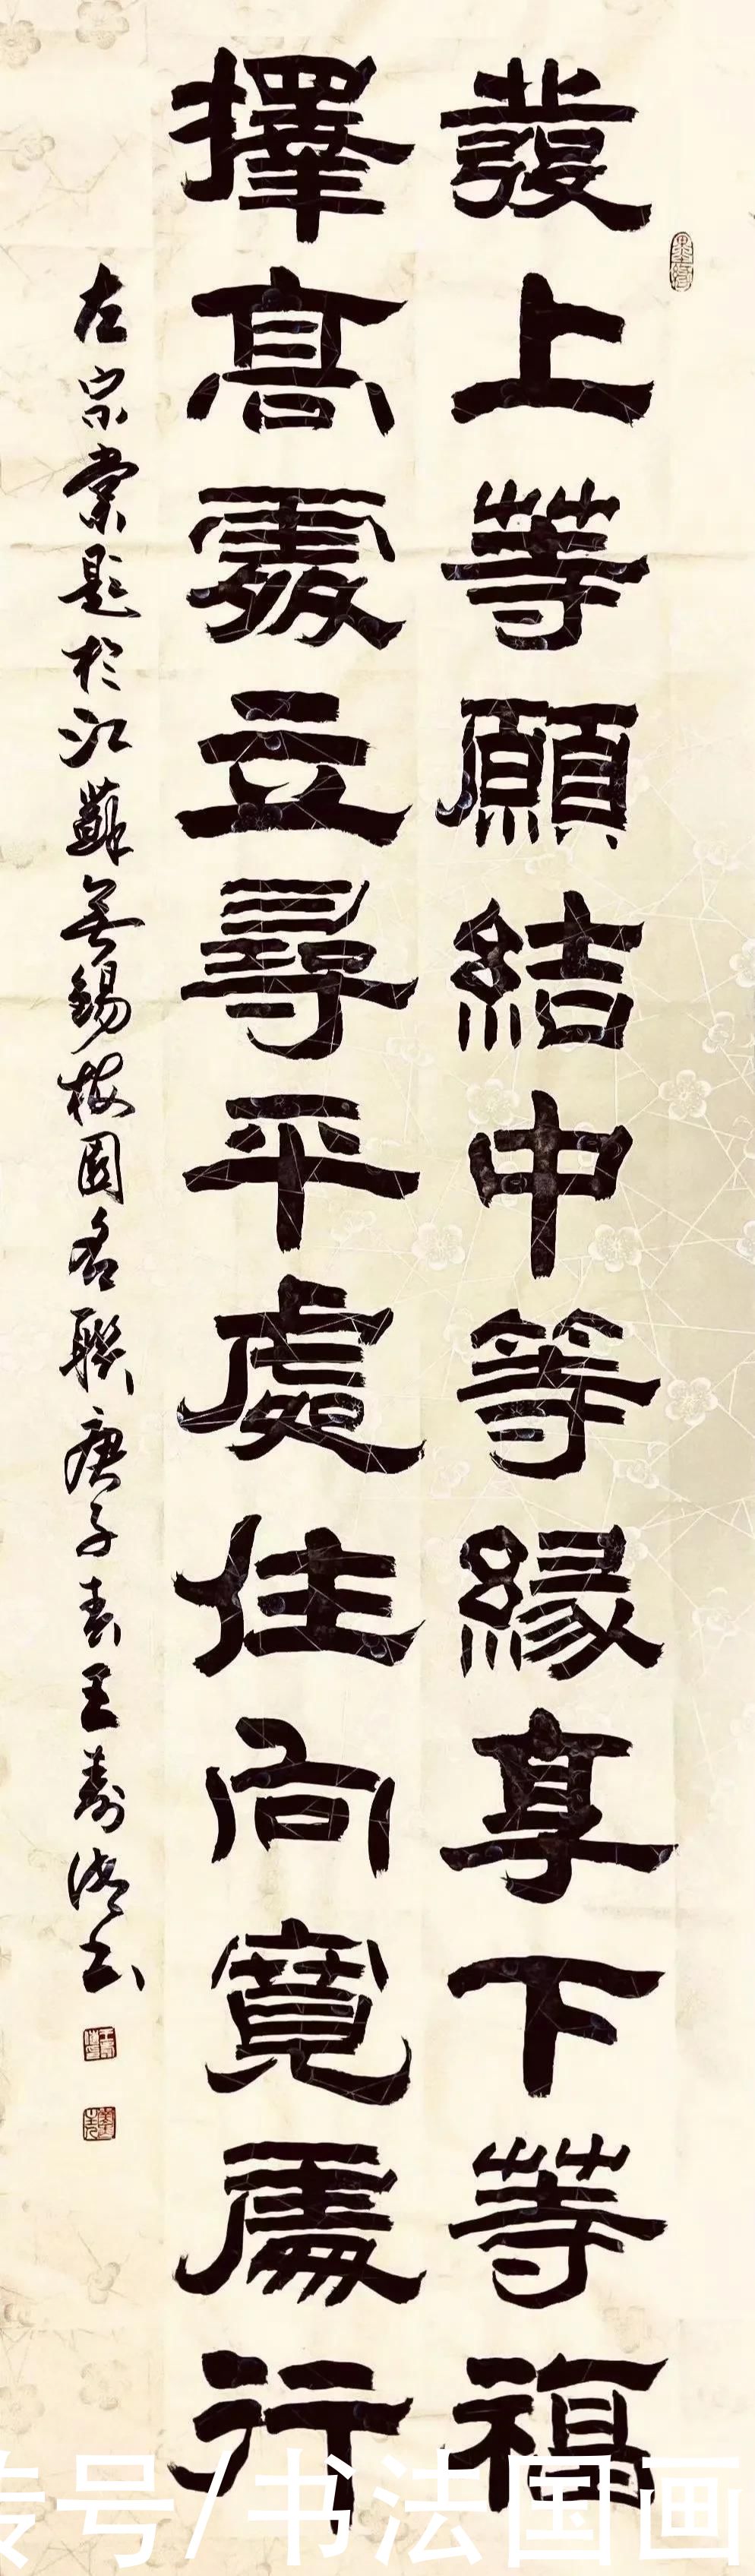 發上等願結中等緣享下等福
擇高處立尋平處住向寬處行
左宗棠題於江蘇無錫梅園名聯庚子春王壽
书法国画